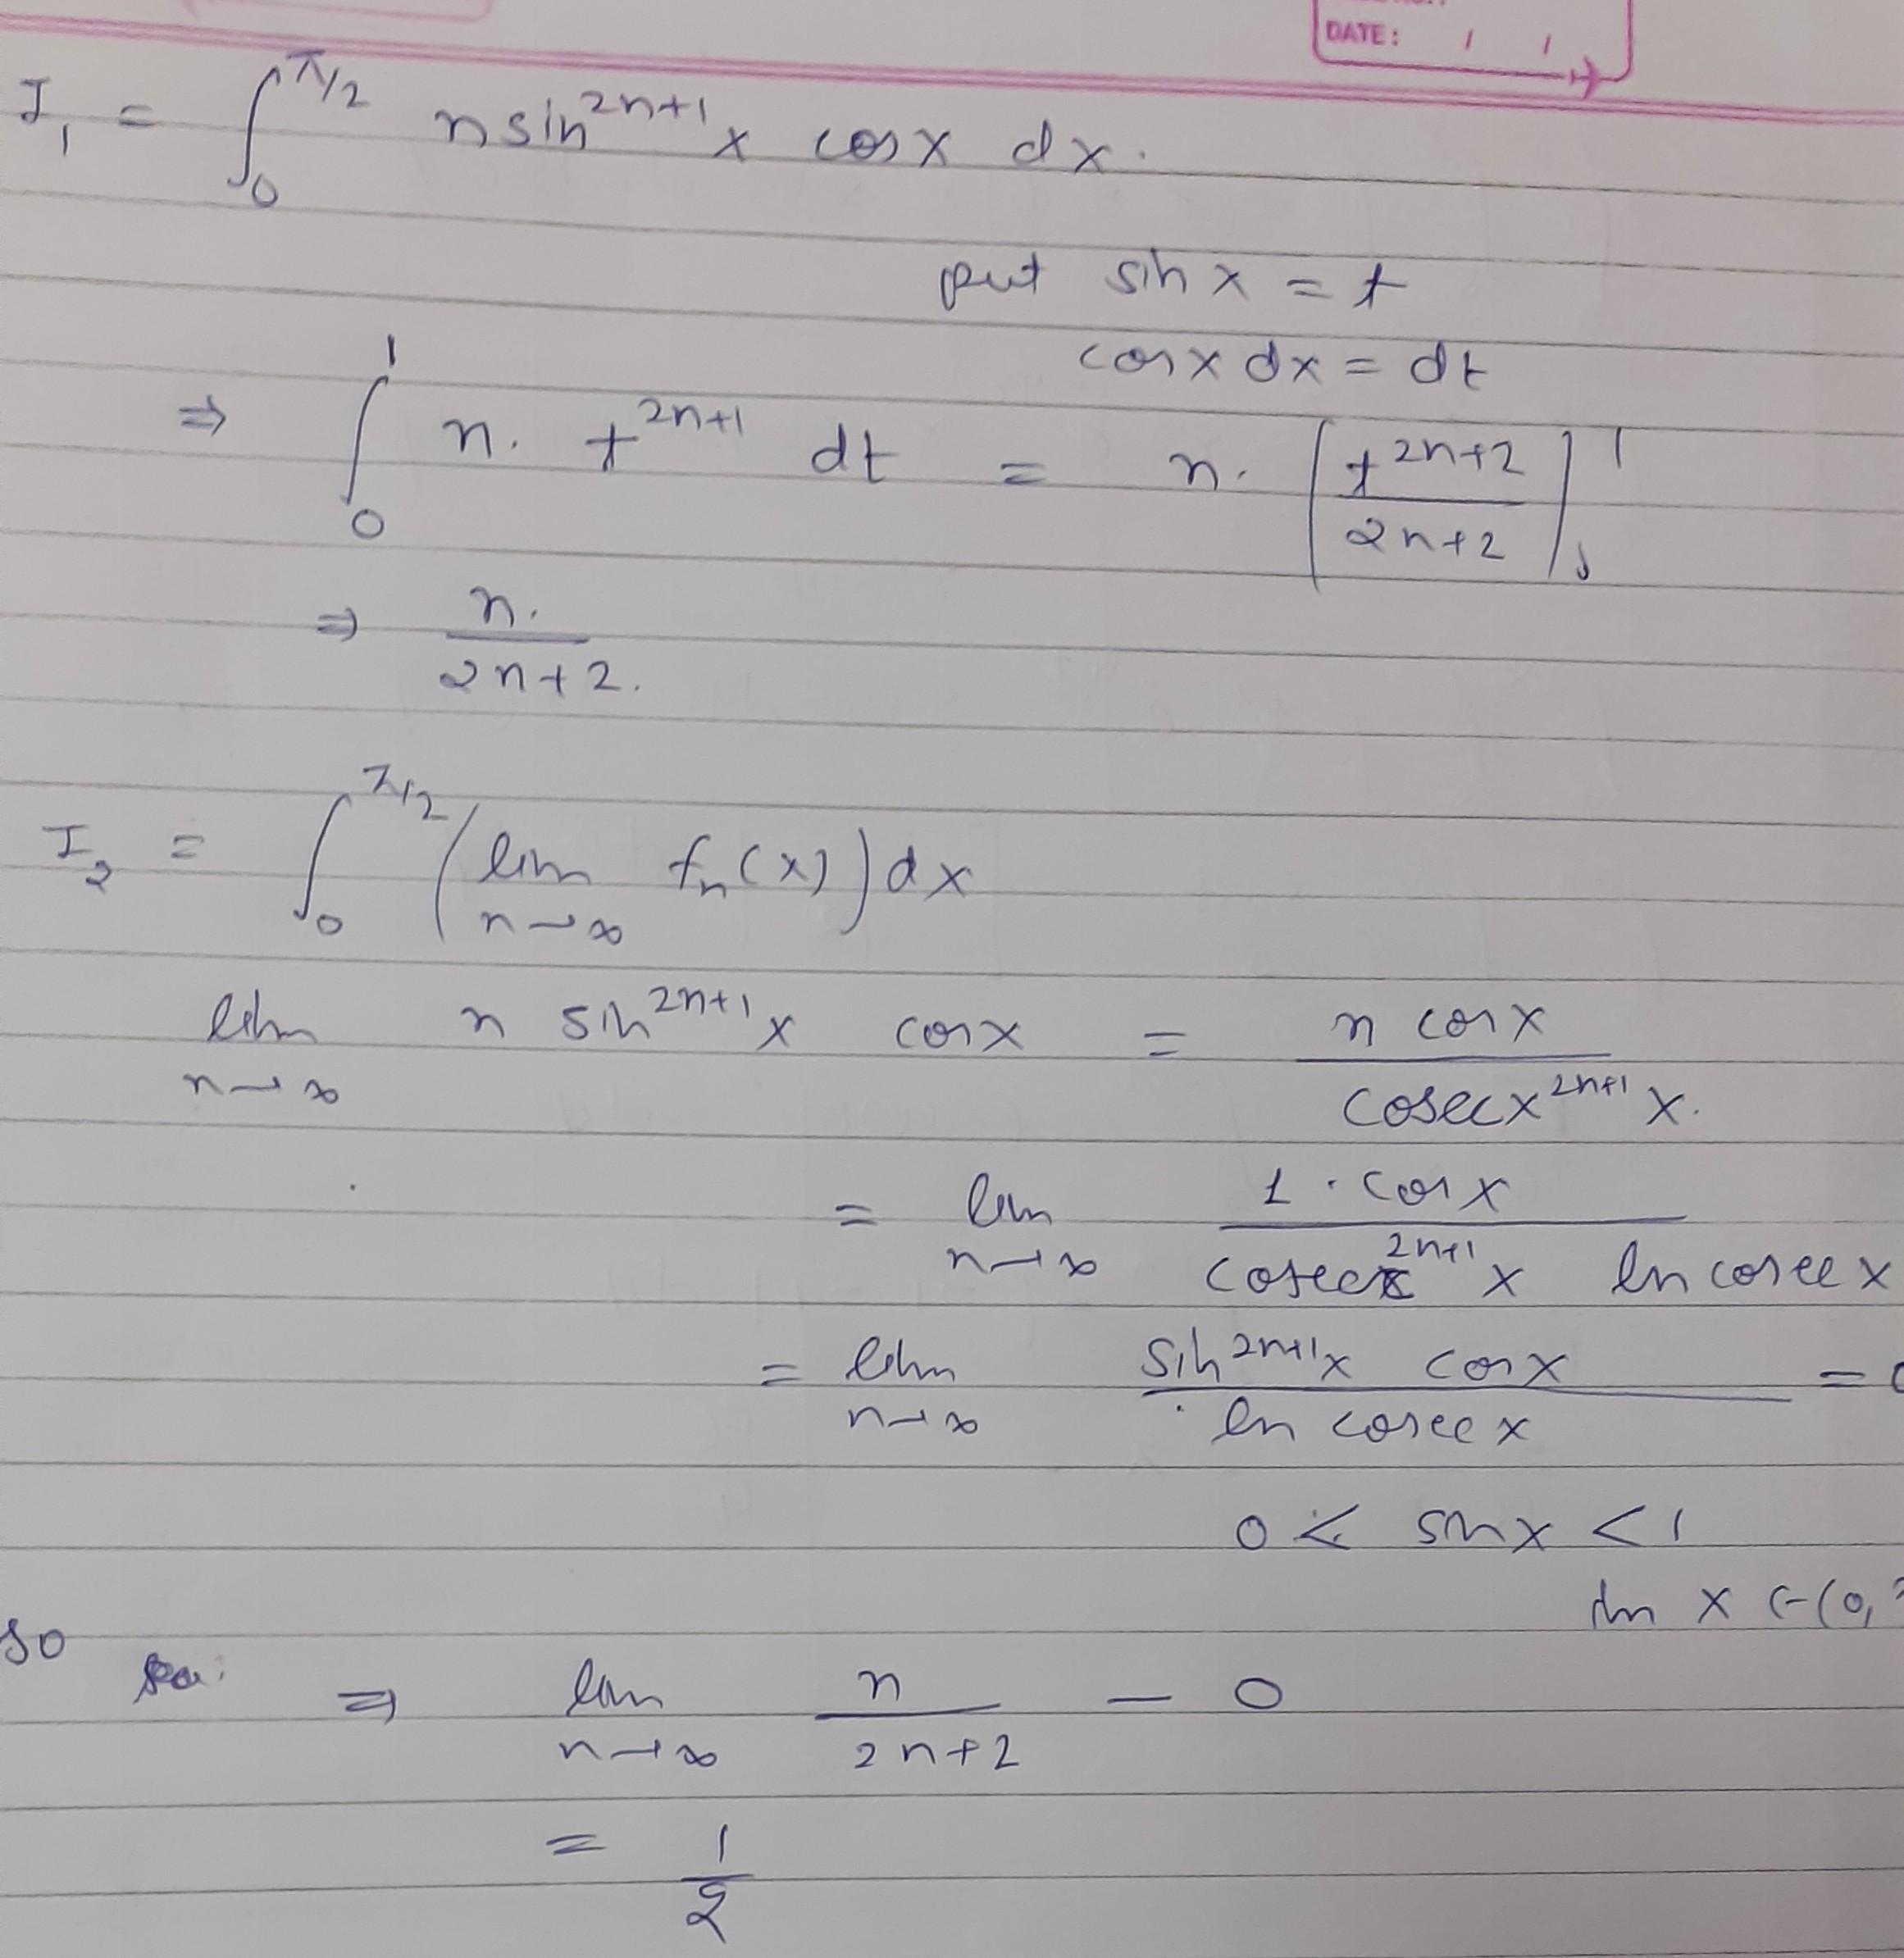 DATE: / /
I₁ = ∫₀^{π/2} n sin^{2n+1} x cos x dx.
put sin x = t
cos x dx = dt
⇒ ∫₀^1 n. t^{2n+1} dt = n. [t^{2n+2} / 2n+2]₀^1
⇒ n. / 2n+2.
I₂ = ∫₀^{π/2} (lim n→∞ fₙ(x)) dx
lim n→∞ n sin^{2n+1} x cos x = n cos x / cosec x^{2n+1} x.
= lim n→∞ 1 . cos x / cosec^{2n+1} x ln cosec x
= lim n→∞ sin^{2n+1} x cos x / ln cosec x = 0
0 < sin x < 1
in x ∈ (0,
so
⇒ lim n→∞ n / 2n+2 - 0
= 1/2